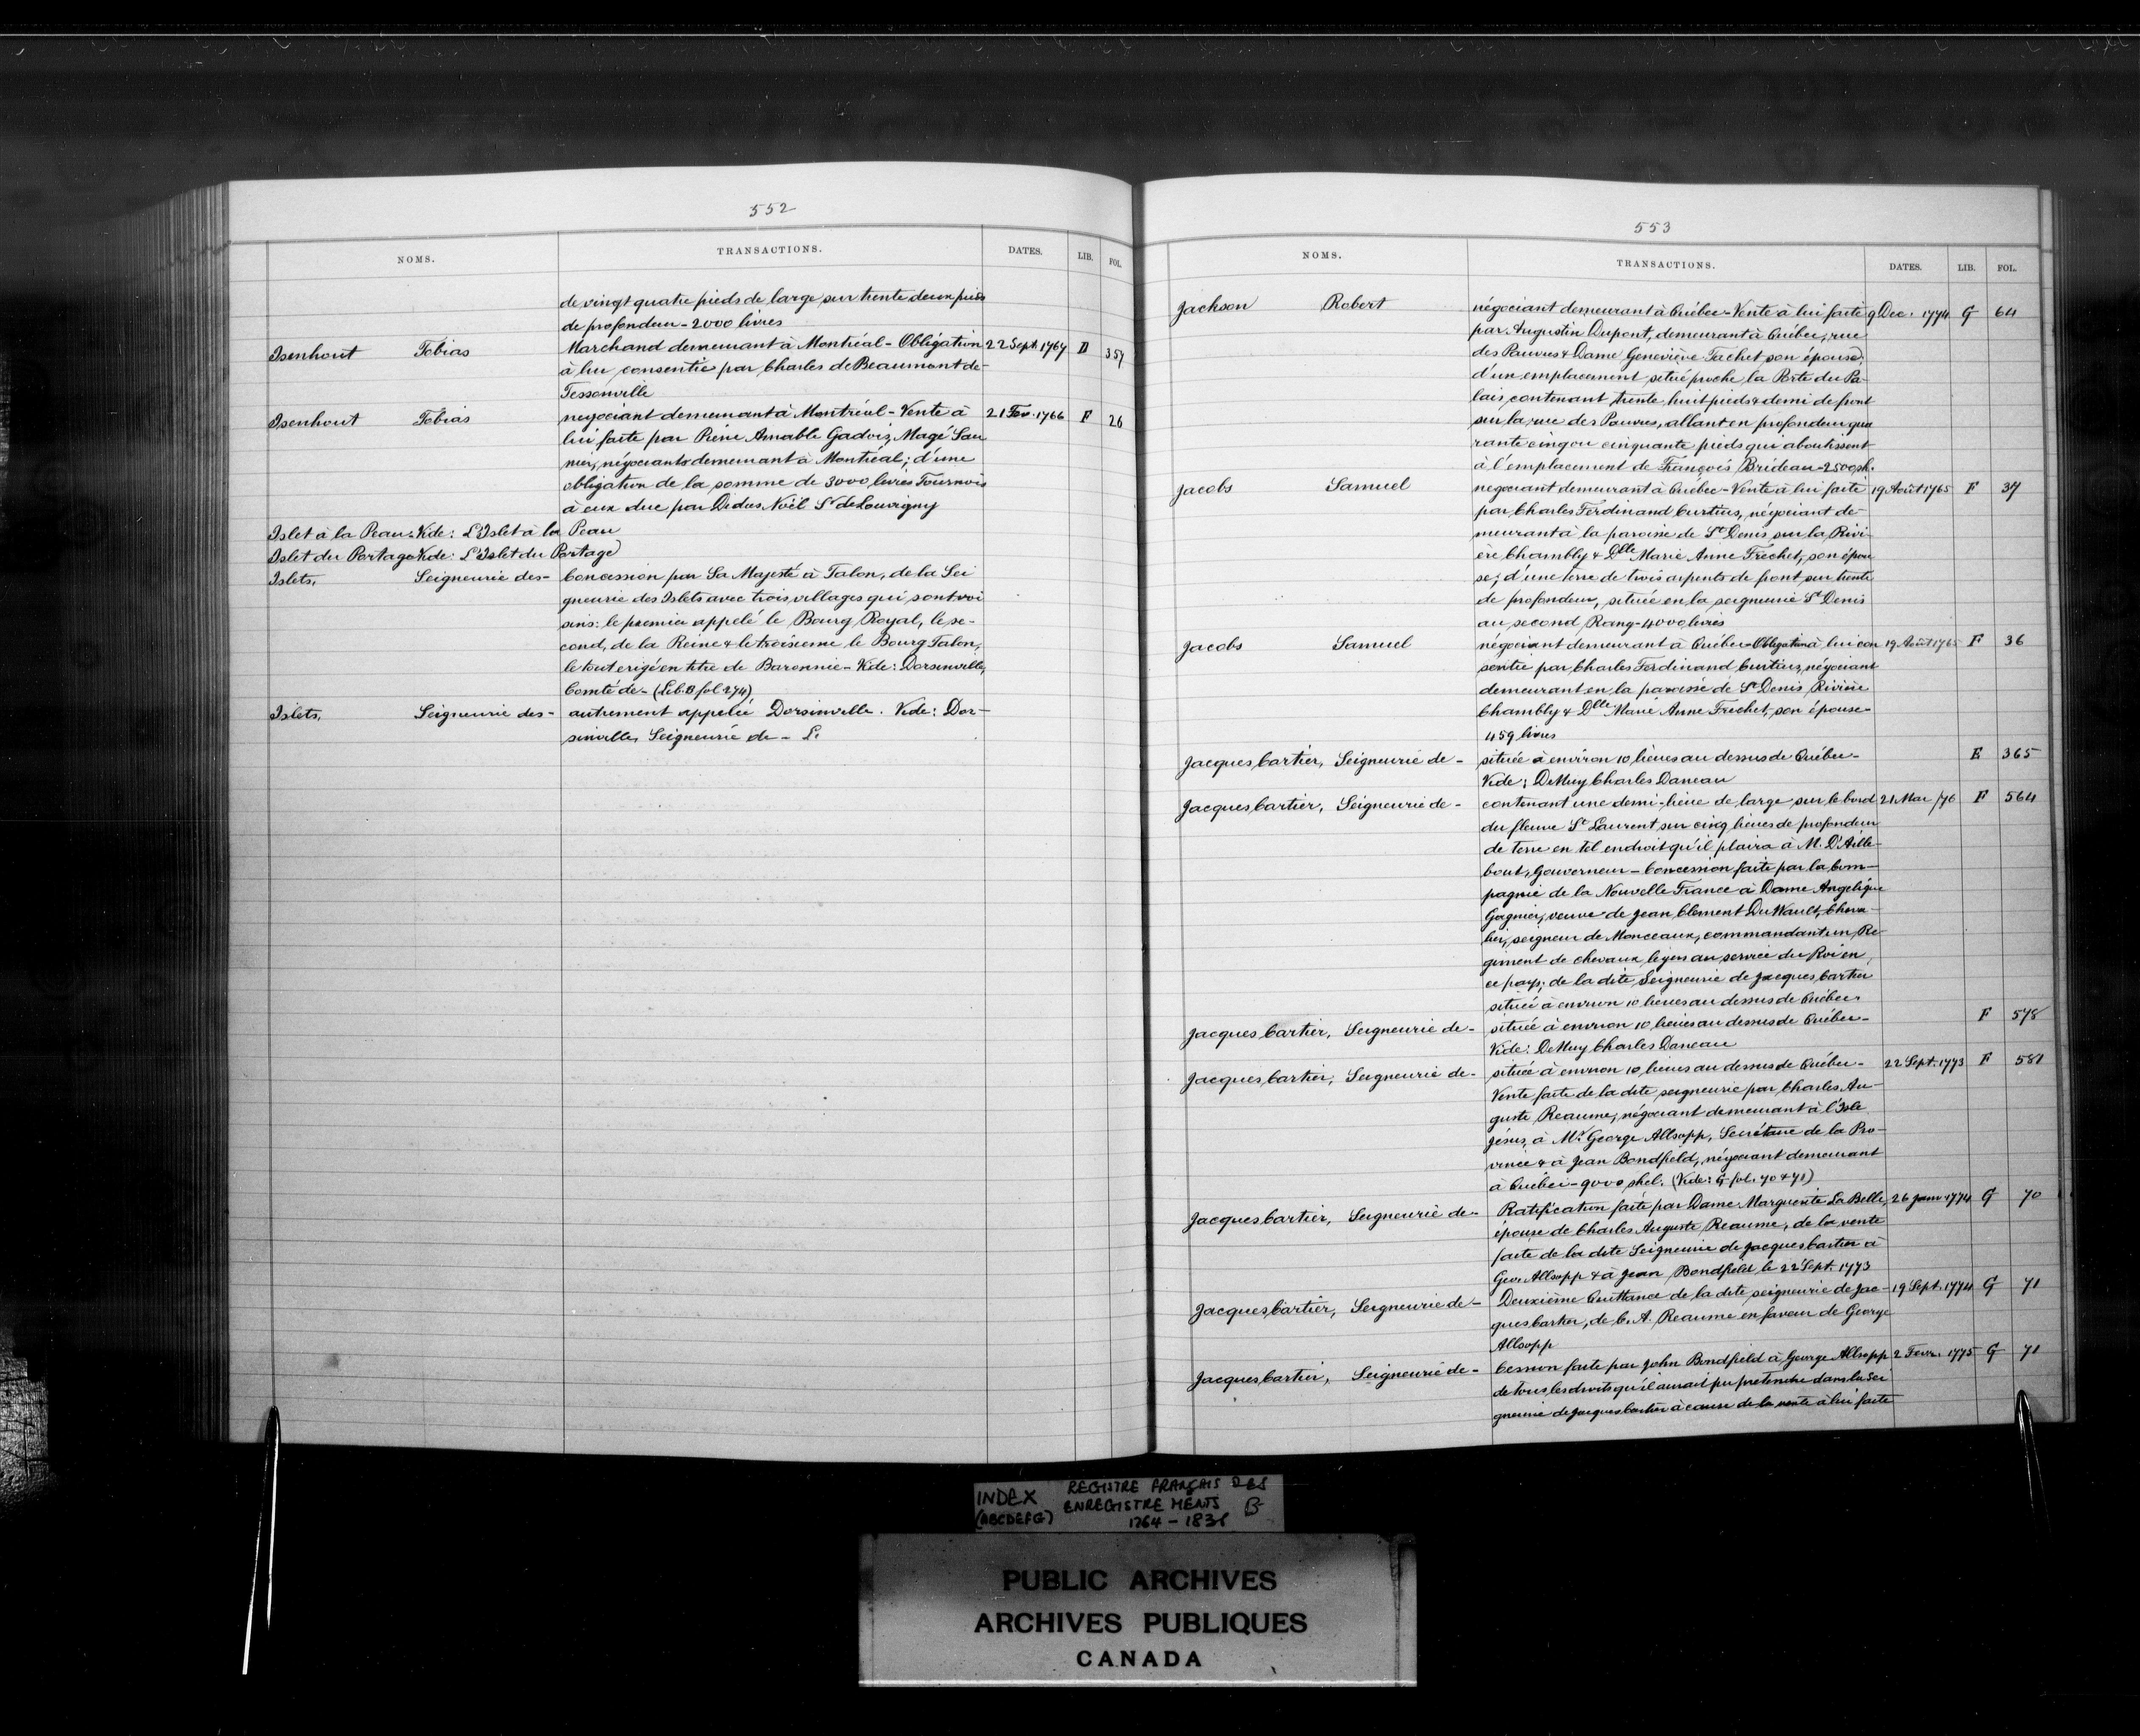 552
NOMS. TRANSACTIONS. DATES. LIB. FOL.
de vingt quatre pieds de large sur trente deux pieds
de profondeur - 2000 livres
Isenhout Tobias Marchand demeurant à Montréal - Obligation 22 Sept. 1767 D 357
à lui consentie par Charles de Beaumont de
Tessonville
Isenhout Tobias negociant demeurant à Montréal - Vente à 21 Fev. 1766 F 26
lui faite par Pierre Amable Gadois, Magé
négociants demeurant à Montréal; d'une
obligation de la somme de 3000 livres Tournois
à eux due par Didus Noël Sr de Louvigny
Islet à la Peau - Vide: L'Islet à la Peau
Islet du Portage Vide: L'Islet du Portage
Islets, Seigneurie des - Concession par Sa Majesté à Talon, de la Sei
gneurie des Islets avec trois villages qui sont voi
sins: le premier appelé le Bourg Royal, le se-
cond, de la Reine & le troisieme le Bourg Talon,
le tout erigé en titre de Baronnie - Vide: Dorsinville,
Comté de - (Lib. B fol 274)
Islets, Seigneurie des - autrement appelée Dorsinville. Vide: Dor-
sinville, Seigneurie de - L.
553
NOMS. TRANSACTIONS. DATES. LIB. FOL.
Jackson Robert négociant demeurant à Québec - Vente à lui faite 9 Dec. 1774 G 64
par Augustin Dupont, demeurant à Québec, rue
des Pauvres & Dame Geneviève Frechet son épouse;
d'un emplacement situé proche la Porte du Pa-
lais contenant trente huit pieds & demi de front
sur la rue des Pauvres, allant en profondeur qua
rante cinq ou cinquante pieds qui aboutissent
à l'emplacement de François Brideau - 2500 sh.
Jacobs Samuel negociant demeurant à Québec - Vente à lui faite 19 Août 1765 F 37
par Charles Ferdinand Curtius, négociant de-
meurant à la paroisse de St Denis sur la Rivi-
ère Chambly & Dlle Marie Anne Fréchet, son épou
se; d'une terre de trois arpents de front sur trente
de profondeur, située en la seigneurie St Denis
au second Rang - 4000 livres
Jacobs Samuel négociant demeurant à Québec - Obligation à lui con 19 Août 1765 F 36
sentie par Charles Ferdinand Curtius, négociant
demeurant en la paroisse de St Denis Rivière
Chambly & Dlle Marie Anne Frechet, son épouse -
459 livres
Jacques Cartier, Seigneurie de - située à environ 10 lieues au dessus de Québec - E 365
Vide: DeMuy Charles Daneau
Jacques Cartier, Seigneurie de - contenant une demi-lieue de large sur le bord 21 Mar /76 F 564
du fleuve St Laurent sur cinq lieues de profondeur
de terre en tel endroit qu'il plaira à M. D'Aille-
bout, Gouverneur - Concession faite par la Com-
pagnie de la Nouvelle France à Dame Angelique
Gagnier, veuve de Jean Clement DuWault, Cheva-
lier, seigneur de Monceaux, commandant un Re-
giment de chevaux legers au service du Roi en
ce pays; de la dite Seigneurie de Jacques Cartier
située à environ 10 lieues au dessus de Québec.
Jacques Cartier, Seigneurie de - située à environ 10 lieues au dessus de Québec - F 578
Vide: DeMuy Charles Daneau
Jacques Cartier, Seigneurie de - située à environ 10 lieues au dessus de Québec - 22 Sept. 1773 F 581
Vente faite de la dite seigneurie par Charles Au-
guste Reaume, négociant demeurant à l'Isle
Jésus, à Mr. George Allsopp, Secrétaire de la Pro-
vince & à Jean Bondfield, négociant demeurant
à Québec - 9000 shel. (Vide: G fol. 70 & 71)
Jacques Cartier, Seigneurie de - Ratification faite par Dame Marguerite La Belle, 26 Janv 1774 G 70
épouse de Charles Auguste Reaume, de la vente
faite de la dite Seigneurie de Jacques Cartier à
Geo. Allsopp & à Jean Bondfield le 22 Sept. 1773
Jacques Cartier, Seigneurie de - Deuxième Quittance de la dite seigneurie de Jac- 19 Sept. 1774 G 71
ques Cartier, de C. A. Reaume en faveur de George
Allsopp
Jacques Cartier, Seigneurie de - Cession faite par John Bondfield à George Allsopp 2 Fevr. 1775 G 71
de tous les droits qu'il aurait pu pretendre dans la Sei
gneurie de Jacques Cartier à cause de la vente à lui faite
INDEX REGISTRE FRANÇAIS DES
(ABCDEFG) ENREGISTREMENTS B
1764 - 1831
PUBLIC ARCHIVES
ARCHIVES PUBLIQUES
CANADA